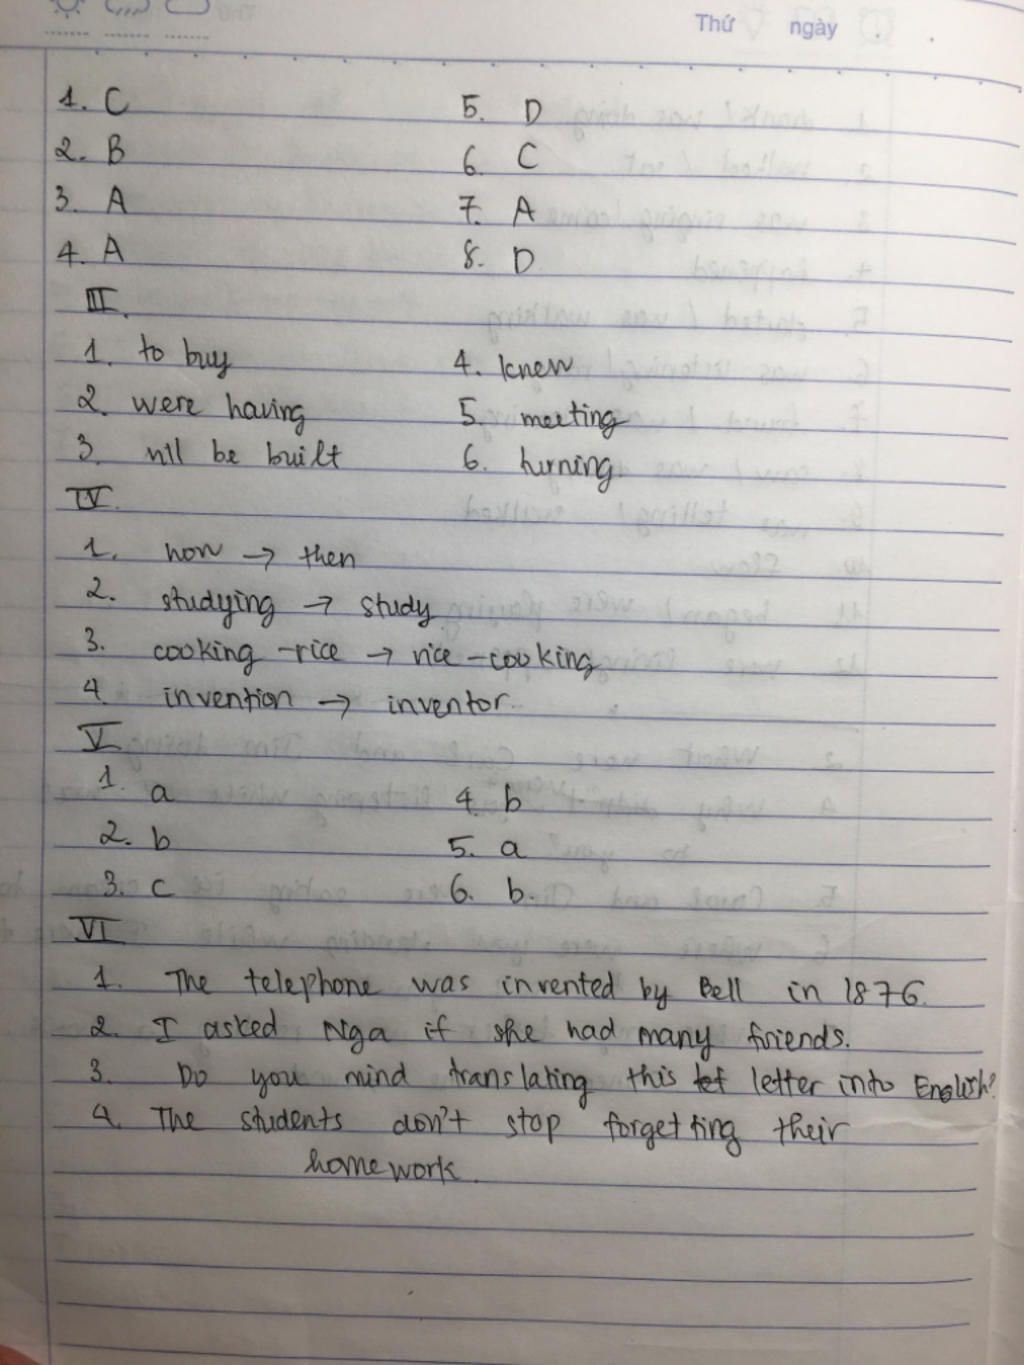 Thứ ngày
1. C 5. D
2. B 6. C
3. A 7. A
4. A 8. D
III.
1. to buy 4. knew
2. were having 5. meeting
3. will be built 6. turning.
IV.
1. now → then
2. studying → study
3. cooking -rice → rice -cooking
4 invention → inventor.
V
1. a 4. b
2. b 5. a
3. c 6. b.
VI
1. The telephone was invented by Bell in 1876.
2. I asked Nga if she had many friends.
3. Do you mind translating this letter into English?
4. The students don't stop forgetting their
homework.